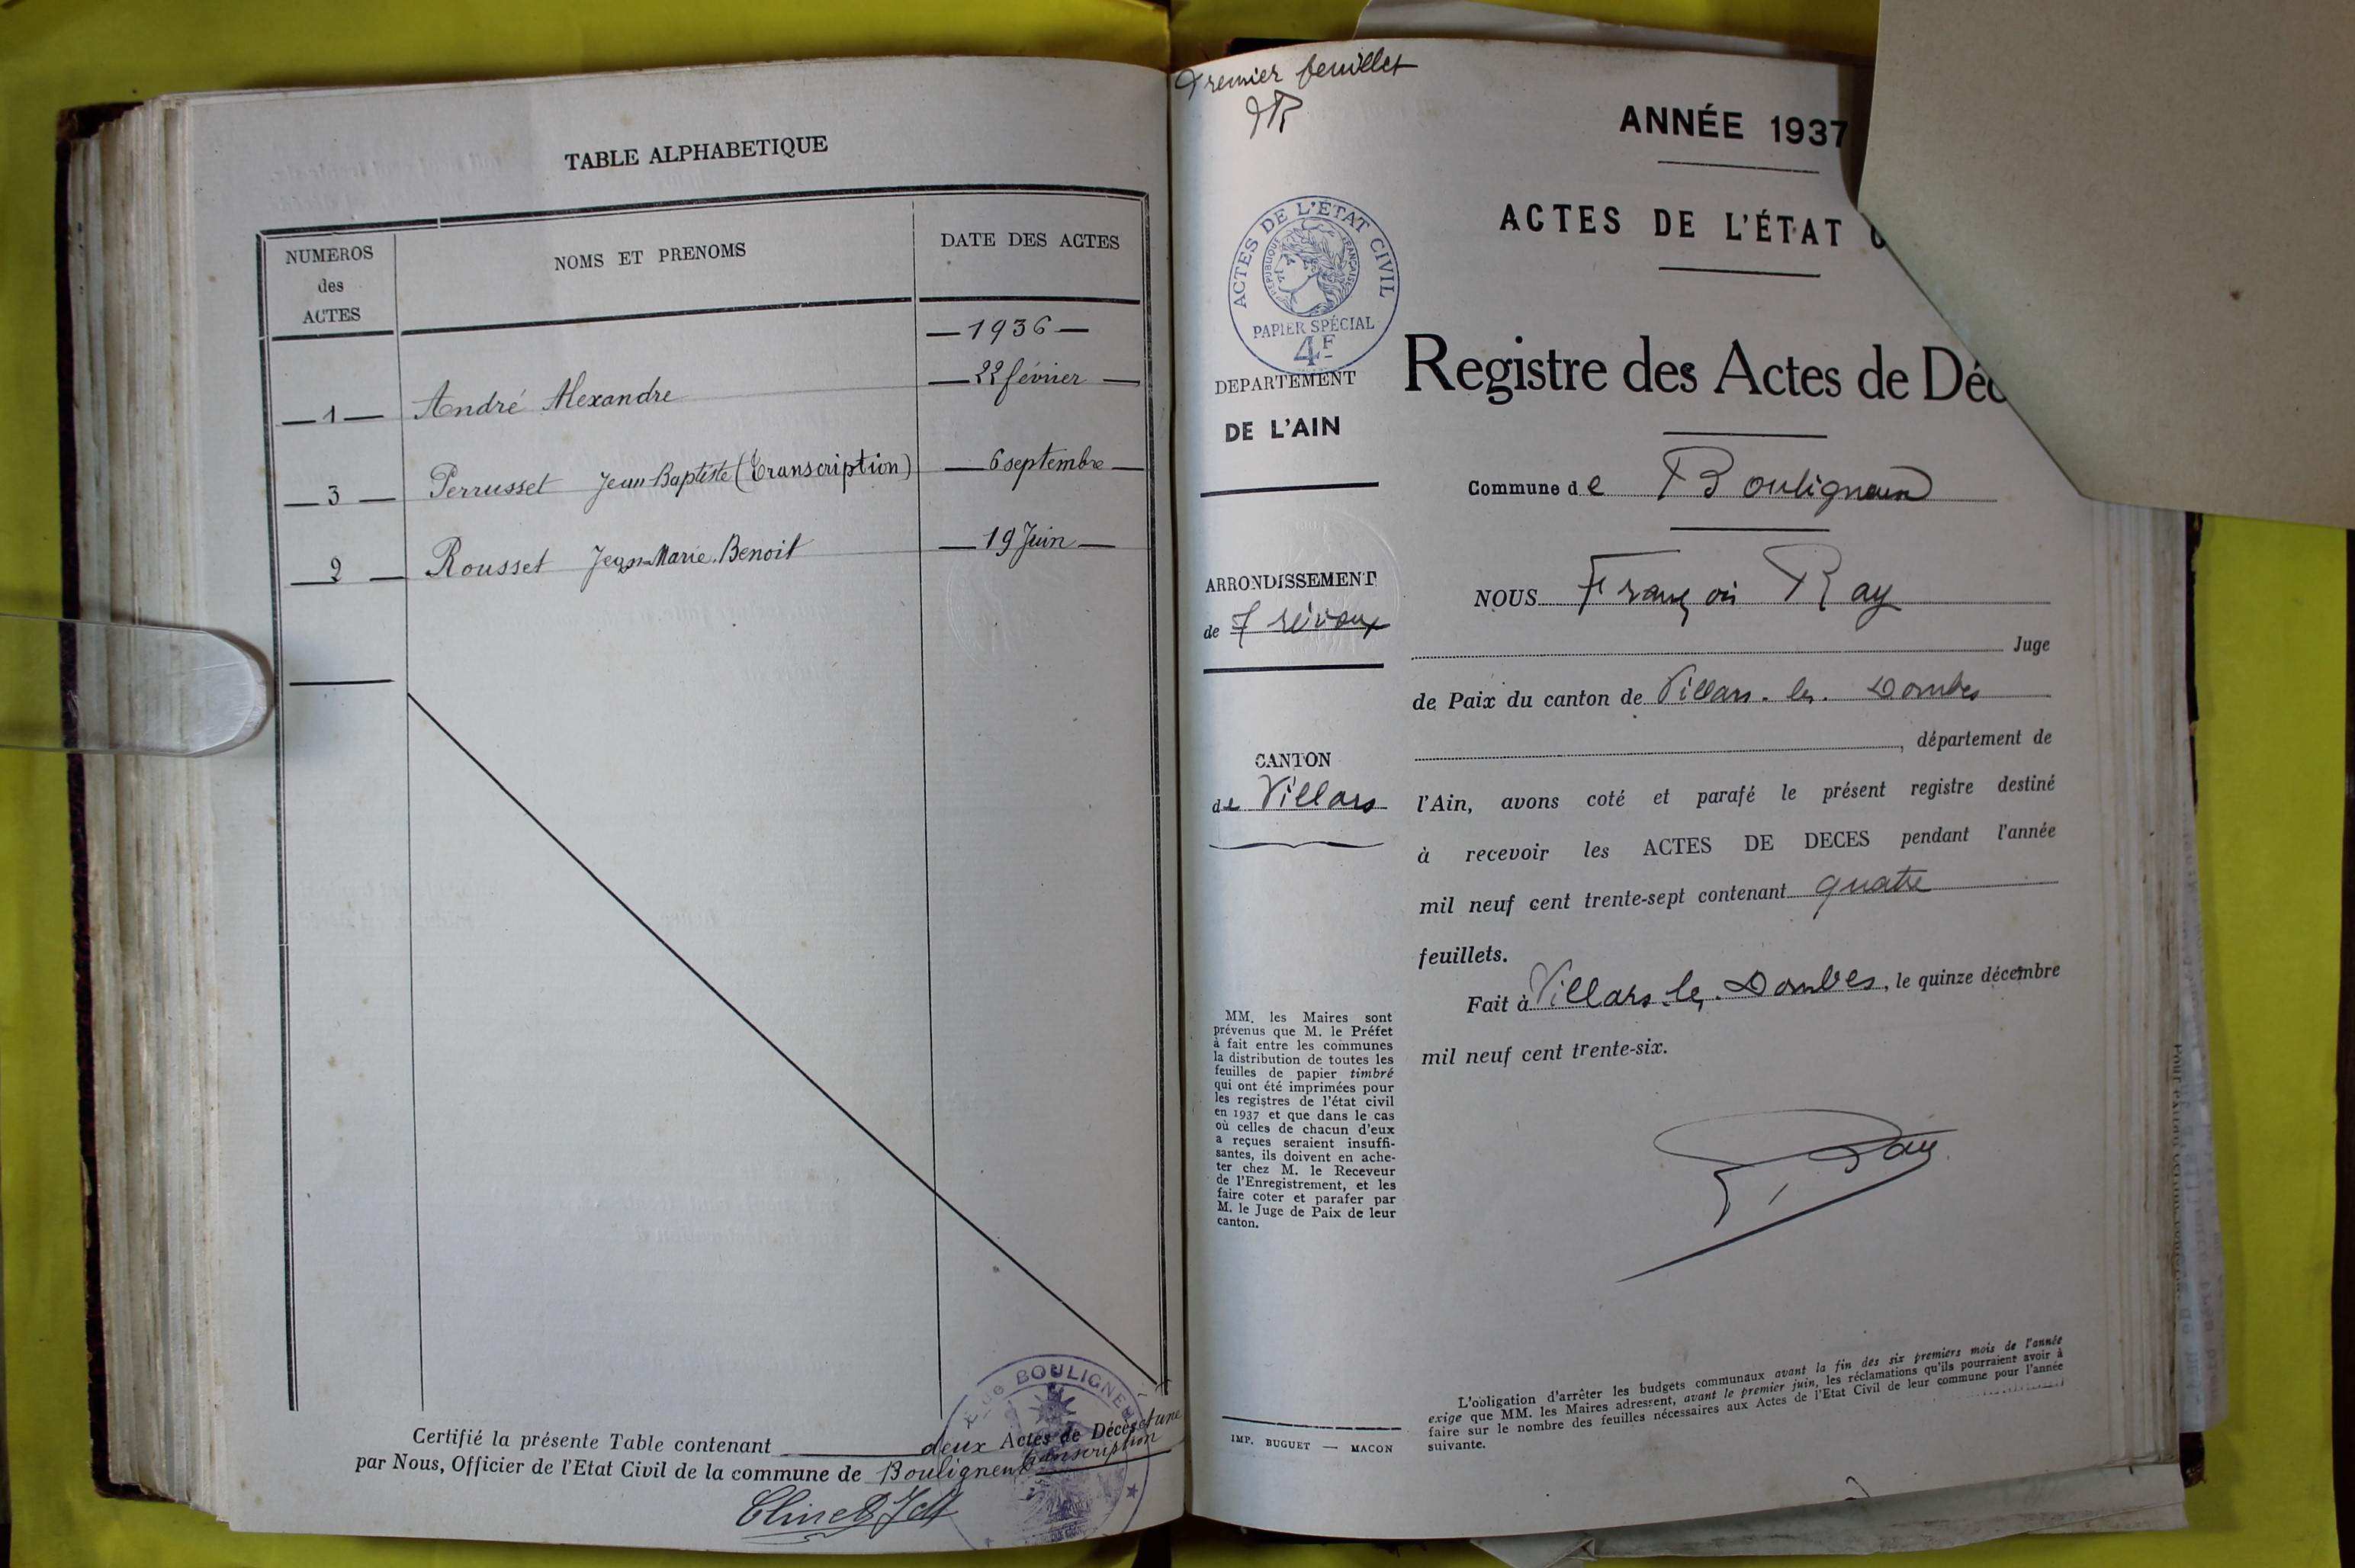 TABLE ALPHABETIQUE
NUMEROS
des
ACTES
NOMS ET PRENOMS
DATE DES ACTES
— 1936 —
— 1 — André Alexandre — 22 février —
— 3 — Perrusset Jean-Baptiste (Transcription) — 6 septembre —
— 2 — Rousset Jean-Marie-Benoit — 19 Juin —
Certifié la présente Table contenant deux Actes de Décès et une
transcription
par Nous, Officier de l'Etat Civil de la commune de Bouligneux
BOULIGNEU
Premier feuillet
ANNÉE 1937
ACTES DE L'ÉTAT
ACTES DE L'ÉTAT CIVIL
RÉPUBLIQUE FRANÇAISE
PAPIER SPÉCIAL
4F
DEPARTEMENT
DE L'AIN
Registre des Actes de Déc
Commune de Bouligneux
ARRONDISSEMENT
de Trévoux
NOUS François Ray
Juge
de Paix du canton de Villars-les-Dombes
, département de
CANTON
de Villars
l'Ain, avons coté et parafé le présent registre destiné
à recevoir les ACTES DE DECES pendant l'année
mil neuf cent trente-sept contenant quatre
feuillets.
Fait à Villars-les-Dombes, le quinze décembre
mil neuf cent trente-six.
Ray
MM. les Maires sont
prévenus que M. le Préfet
à fait entre les communes
la distribution de toutes les
feuilles de papier timbré
qui ont été imprimées pour
les registres de l'état civil
en 1937 et que dans le cas
où celles de chacun d'eux
a reçues seraient insuffi-
santes, ils doivent en ache-
ter chez M. le Receveur
de l'Enregistrement, et les
faire coter et parafer par
M. le Juge de Paix de leur
canton.
IMP. BUGUET — MACON
L'obligation d'arrêter les budgets communaux avant la fin des six premiers mois de l'année
exige que MM. les Maires adressent, avant le premier juin, les réclamations qu'ils pourraient avoir à
faire sur le nombre des feuilles nécessaires aux Actes de l'Etat Civil de leur commune pour l'année
suivante.